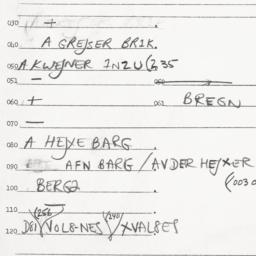 030 +
040 A GREJSER BRIK.
050 A KWEJNER INZU(2,35
051 —
060 + 061 BREGN
070 —
080 A HEJXE BARG
090 AFN BARG / AV DER HEJXER
100 BERG2 (003
110 (256 (240
120 VOLB-NES XVALBES